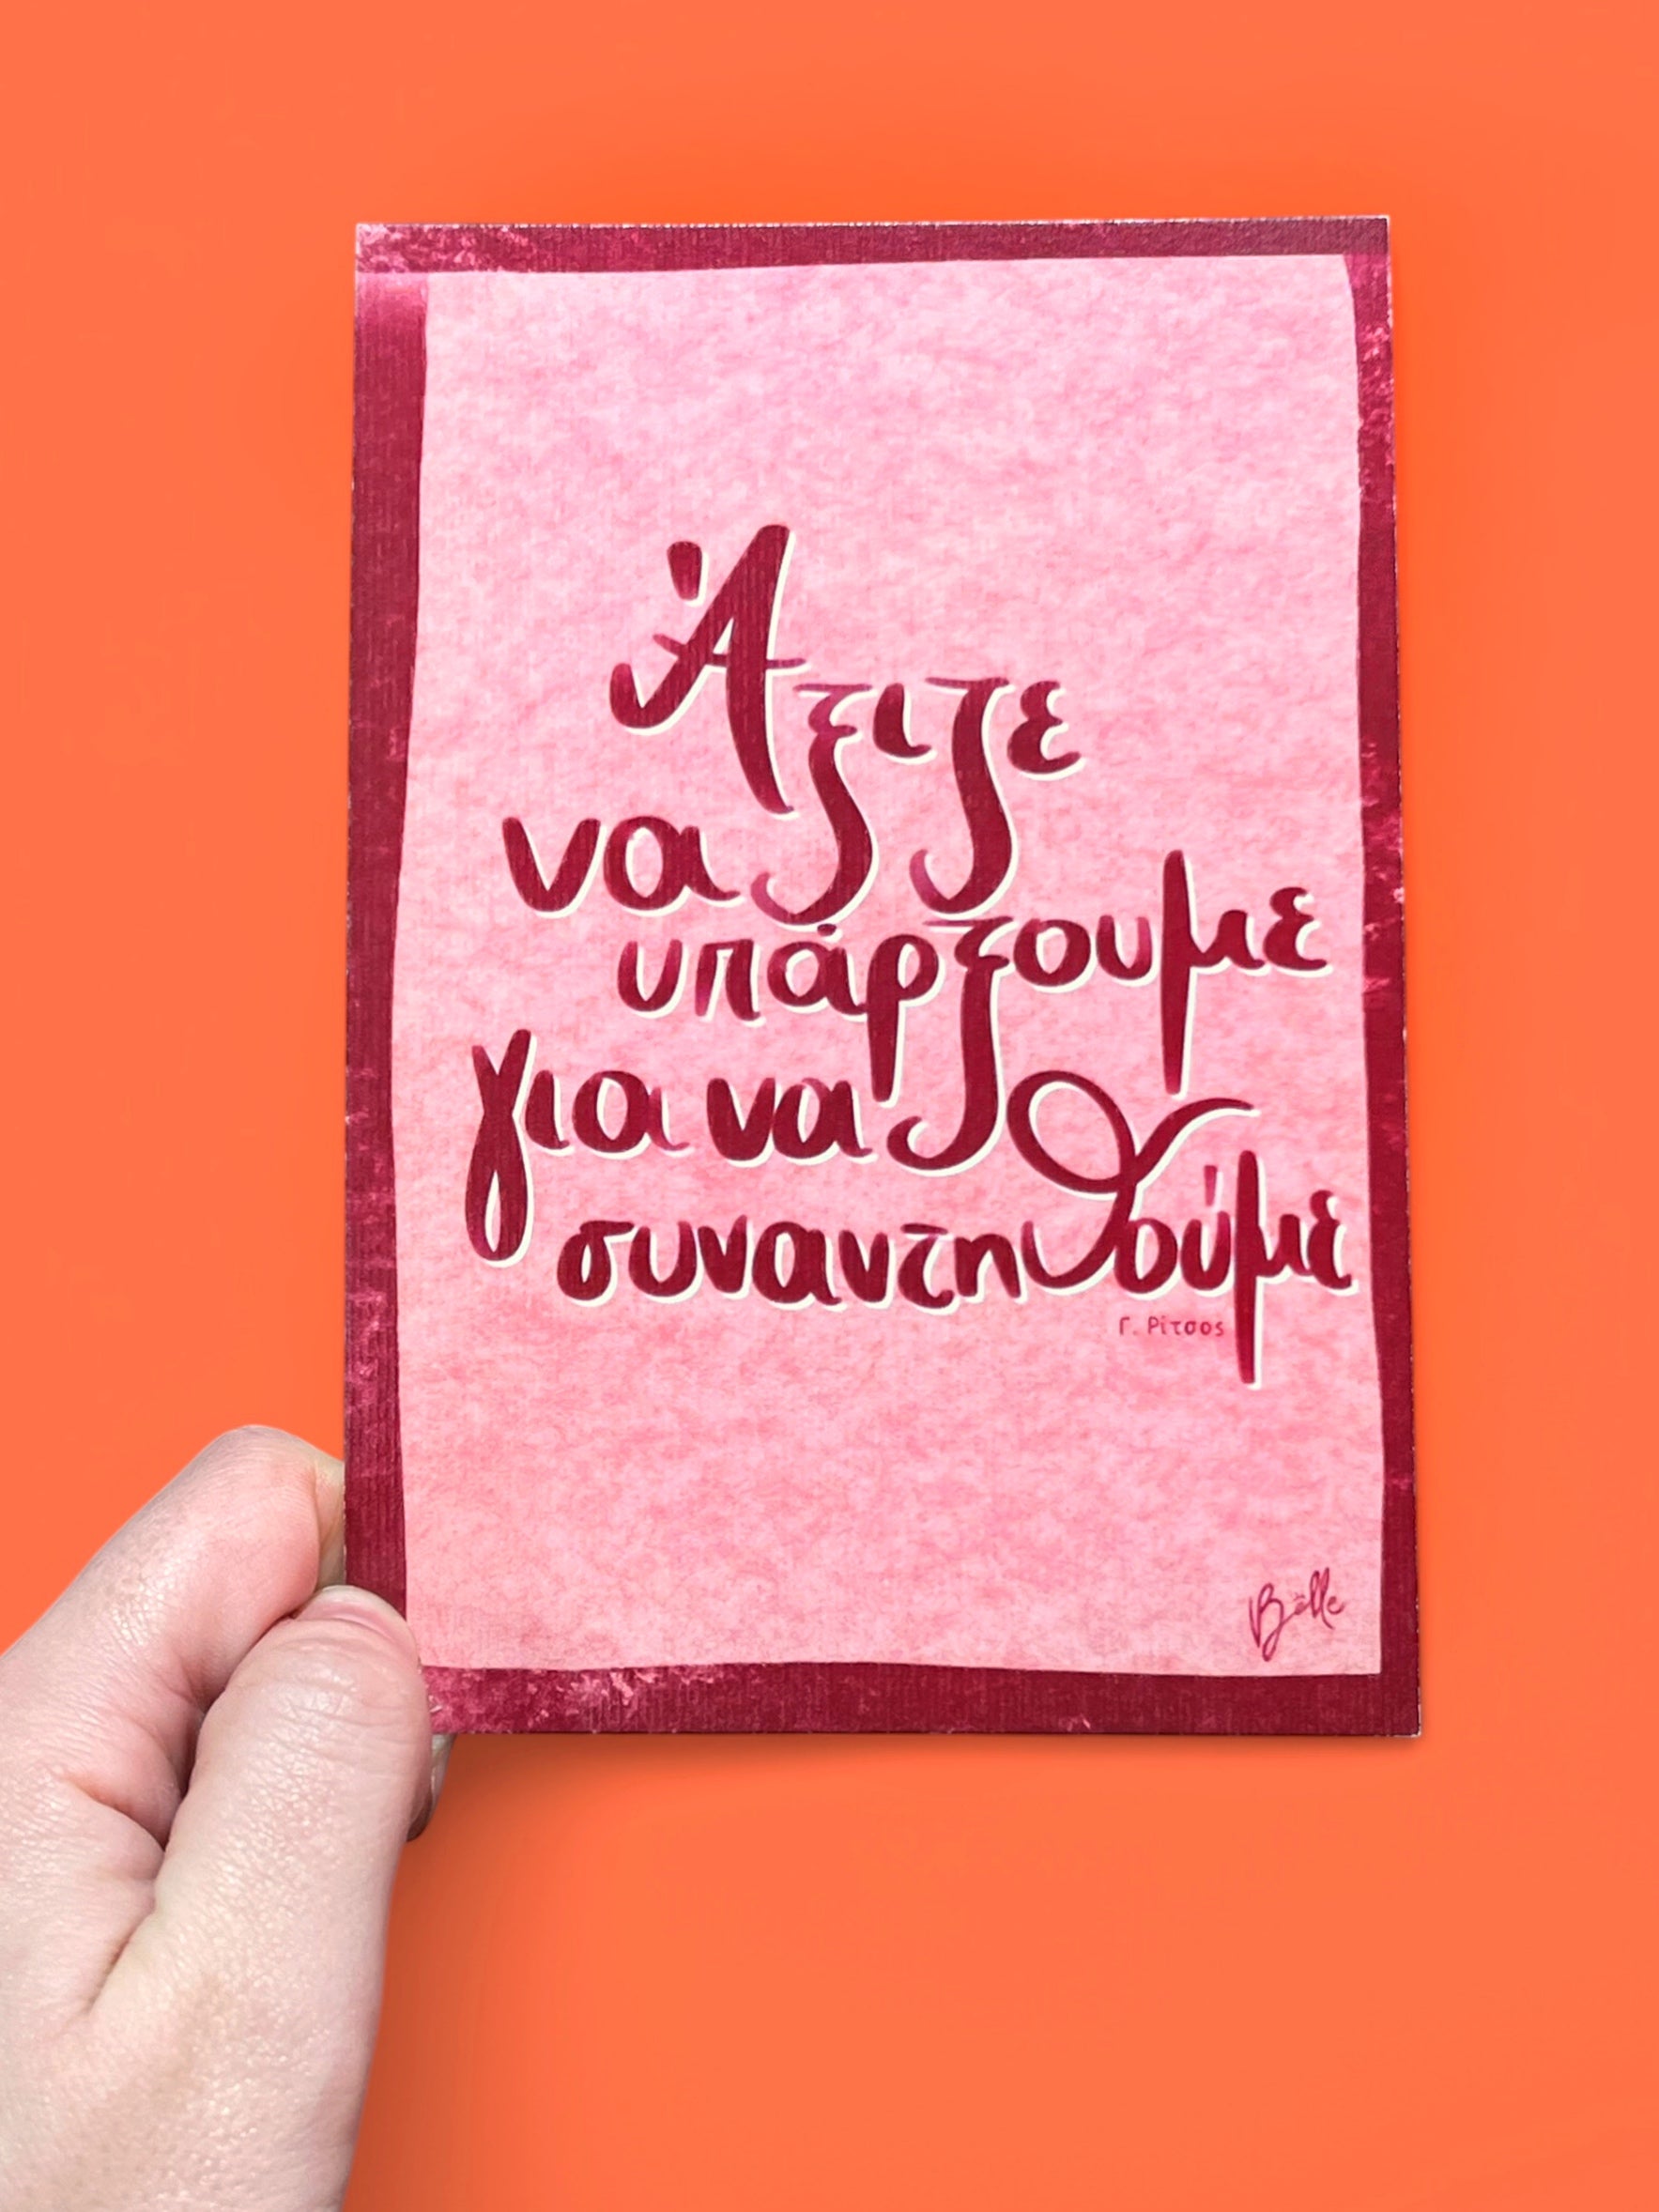 Άξιζε
να
υπάρξουμε
για να
συναντηθούμε
Γ. Ρίτσος
Bëlle